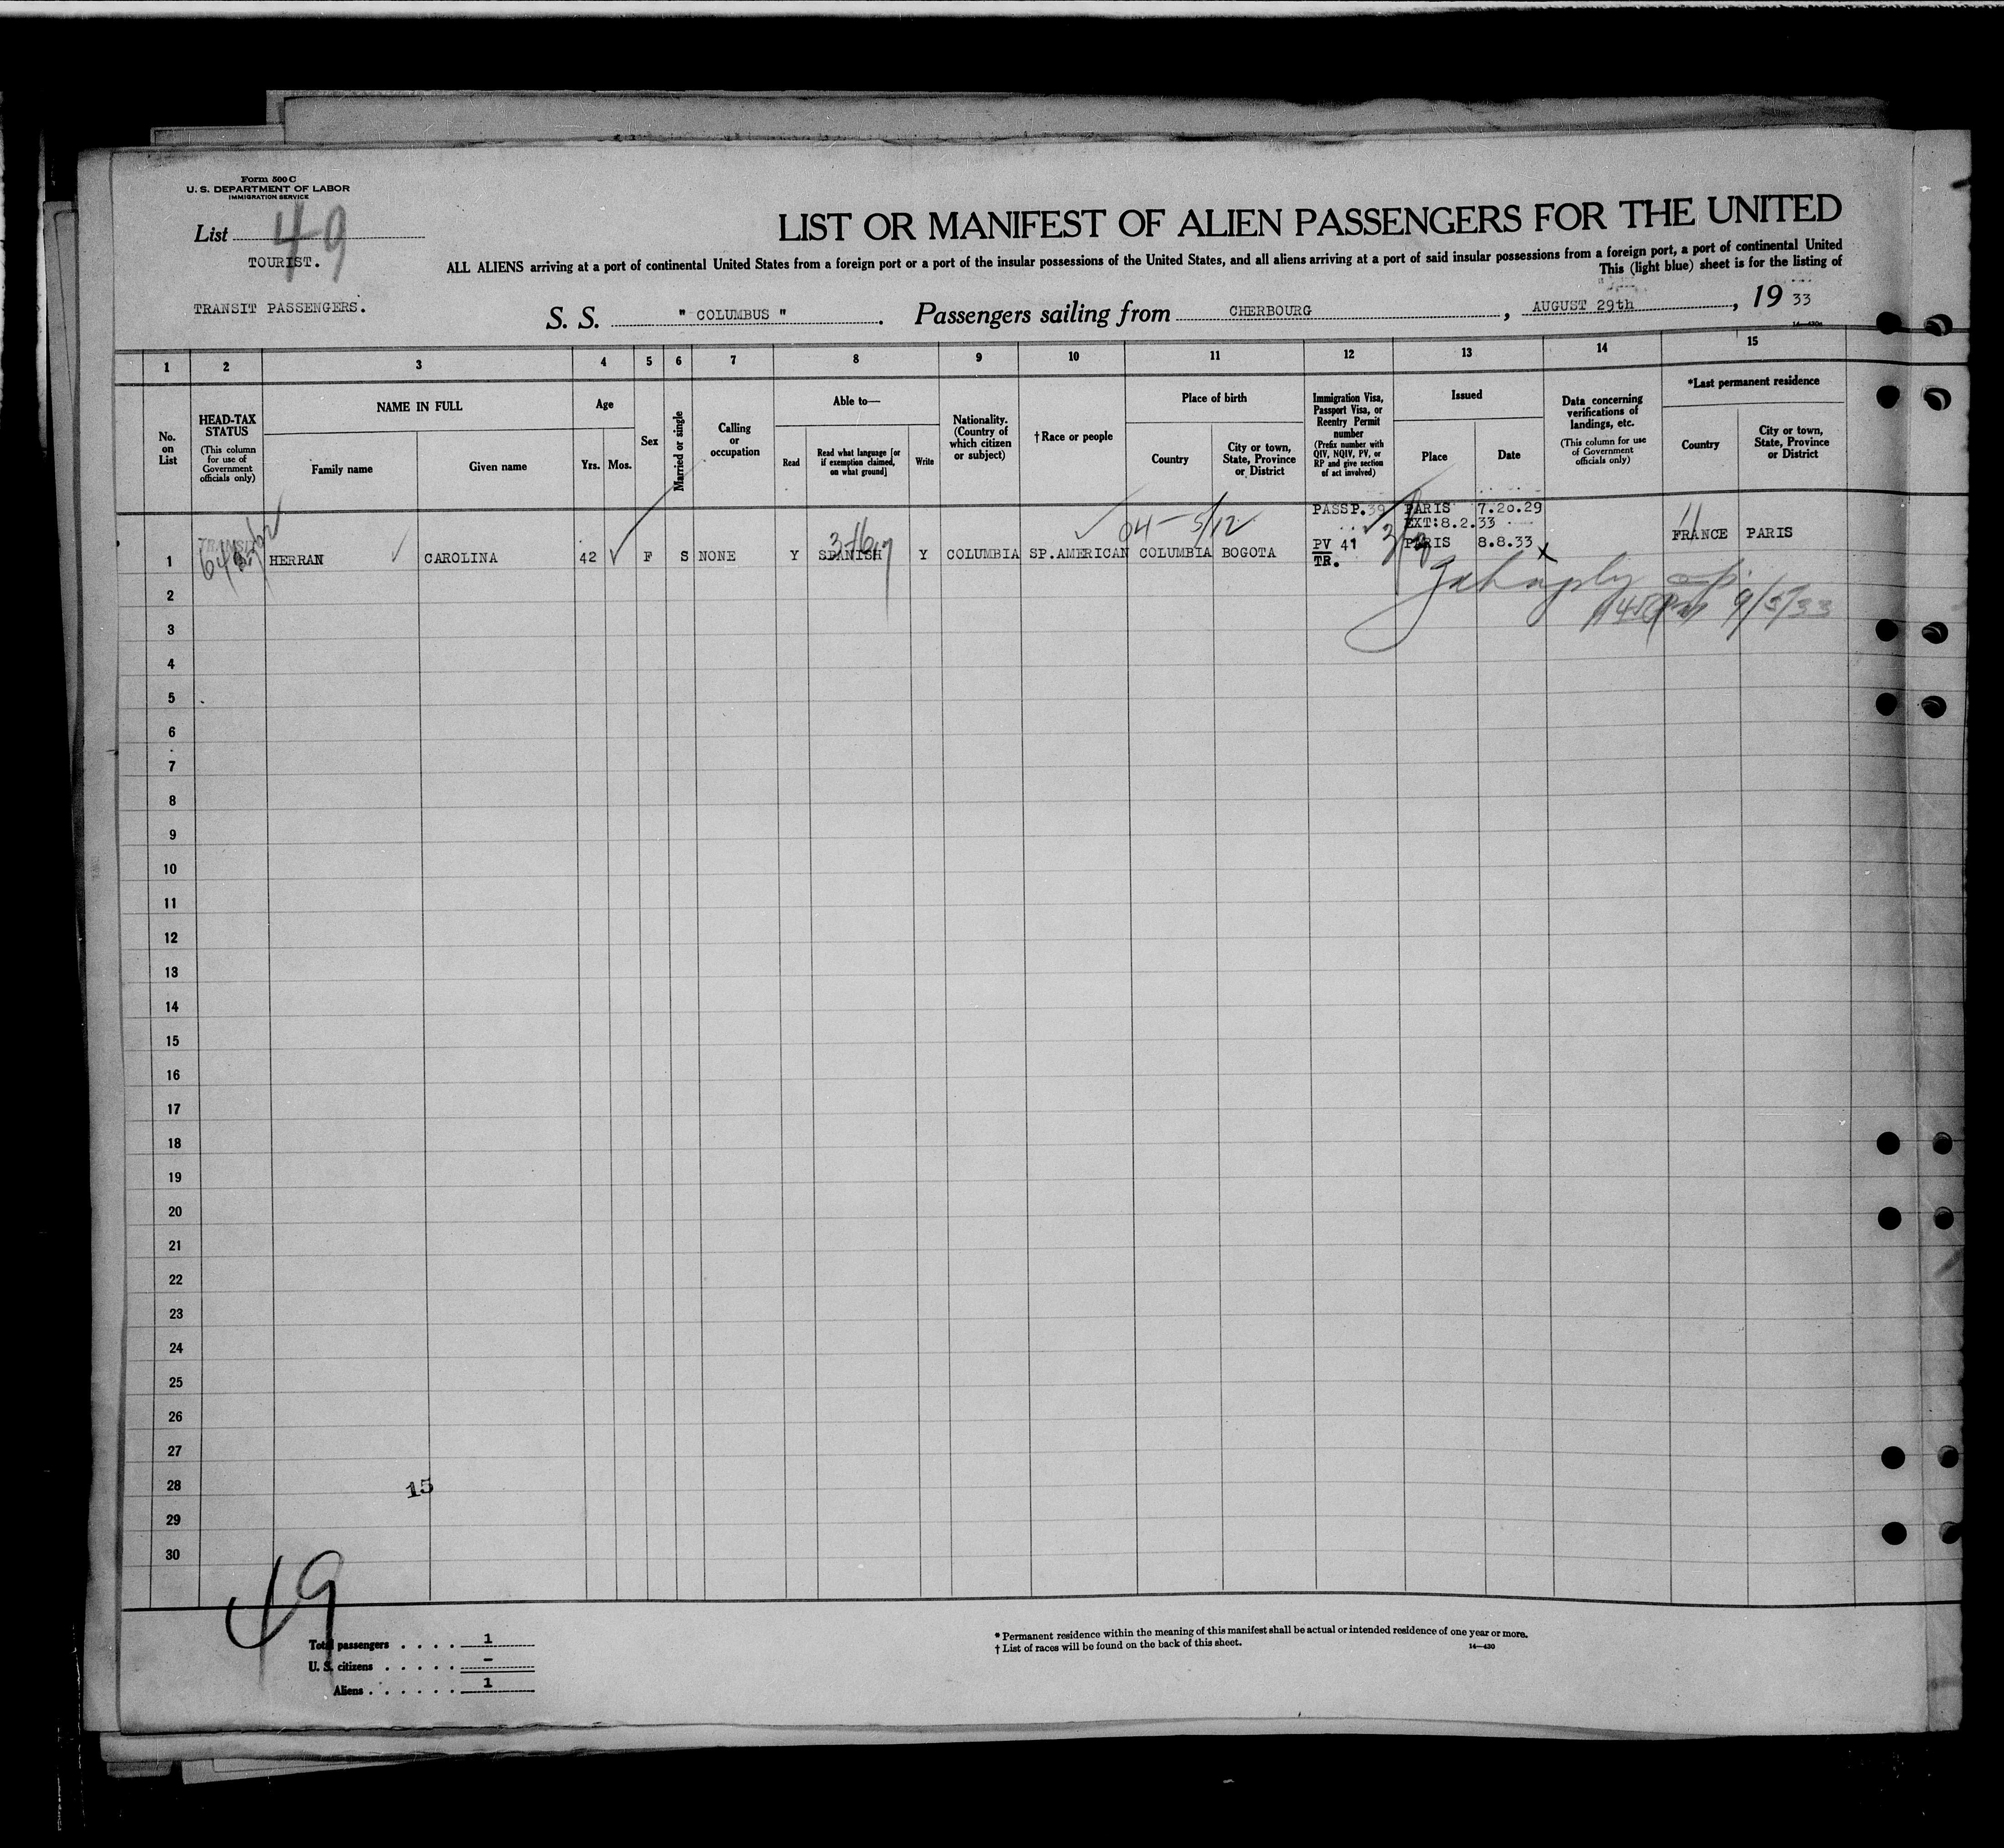 Form 500 C
U. S. DEPARTMENT OF LABOR
IMMIGRATION SERVICE
List 49
TOURIST.
TRANSIT PASSENGERS.
LIST OR MANIFEST OF ALIEN PASSENGERS FOR THE UNITED
ALL ALIENS arriving at a port of continental United States from a foreign port or a port of the insular possessions of the United States, and all aliens arriving at a port of said insular possessions from a foreign port, a port of continental United
This (light blue) sheet is for the listing of
S. S. " COLUMBUS " . Passengers sailing from CHERBOURG , AUGUST 29th , 19 33
1 2 3 4 5 6 7 8 9 10 11 12 13 14 15
No. on List
HEAD-TAX STATUS (This column for use of Government officials only)
NAME IN FULL
Family name
Given name
Age
Yrs. Mos.
Sex
Married or single
Calling or occupation
Able to—
Read
Read what language [or if exemption claimed, on what ground]
Write
Nationality. (Country of which citizen or subject)
† Race or people
Place of birth
Country
City or town, State, Province or District
Immigration Visa, Passport Visa, or Reentry Permit number (Prefix number with QIV, NQIV, PV, or RP and give section of act involved)
Issued
Place
Date
Data concerning verifications of landings, etc. (This column for use of Government officials only)
*Last permanent residence
Country
City or town, State, Province or District
04 - 5/12
PASSP.39 PARIS 7.20.29
EXT:8.2.33
1 TRANSIT HERRAN CAROLINA 42 F S NONE Y SPANISH Y COLUMBIA SP.AMERICAN COLUMBIA BOGOTA PV 41 PARIS 8.8.33 x FRANCE PARIS
TR.
9/5/33
2
3
4
5
6
7
8
9
10
11
12
13
14
15
16
17
18
19
20
21
22
23
24
25
26
27
28
15
29
30
49
Total passengers . . . . 1
U. S. citizens . . . . . –
Aliens . . . . . . 1
* Permanent residence within the meaning of this manifest shall be actual or intended residence of one year or more.
† List of races will be found on the back of this sheet.
14—430